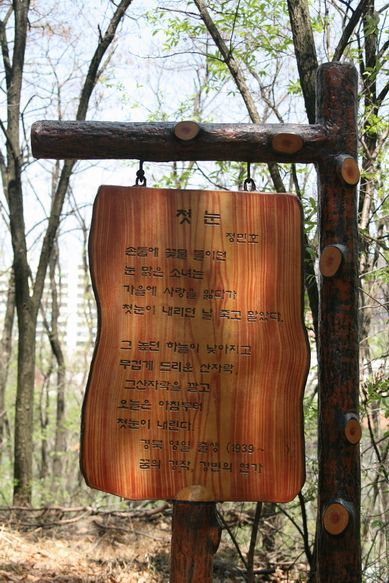 첫눈
정민호
손톱에 꽃물 들이던
눈 맑은 소녀는
가을에 사랑을 앓다가
첫눈이 내리던 날 죽고 말았다.
그 높던 하늘이 낮아지고
무겁게 드리운 산자락,
그산자락을 깔고
오늘은 아침부터
첫눈이 내린다.
경북 영일 출생 (1939 ~ ).
꿈의 경작, 강변의 연가